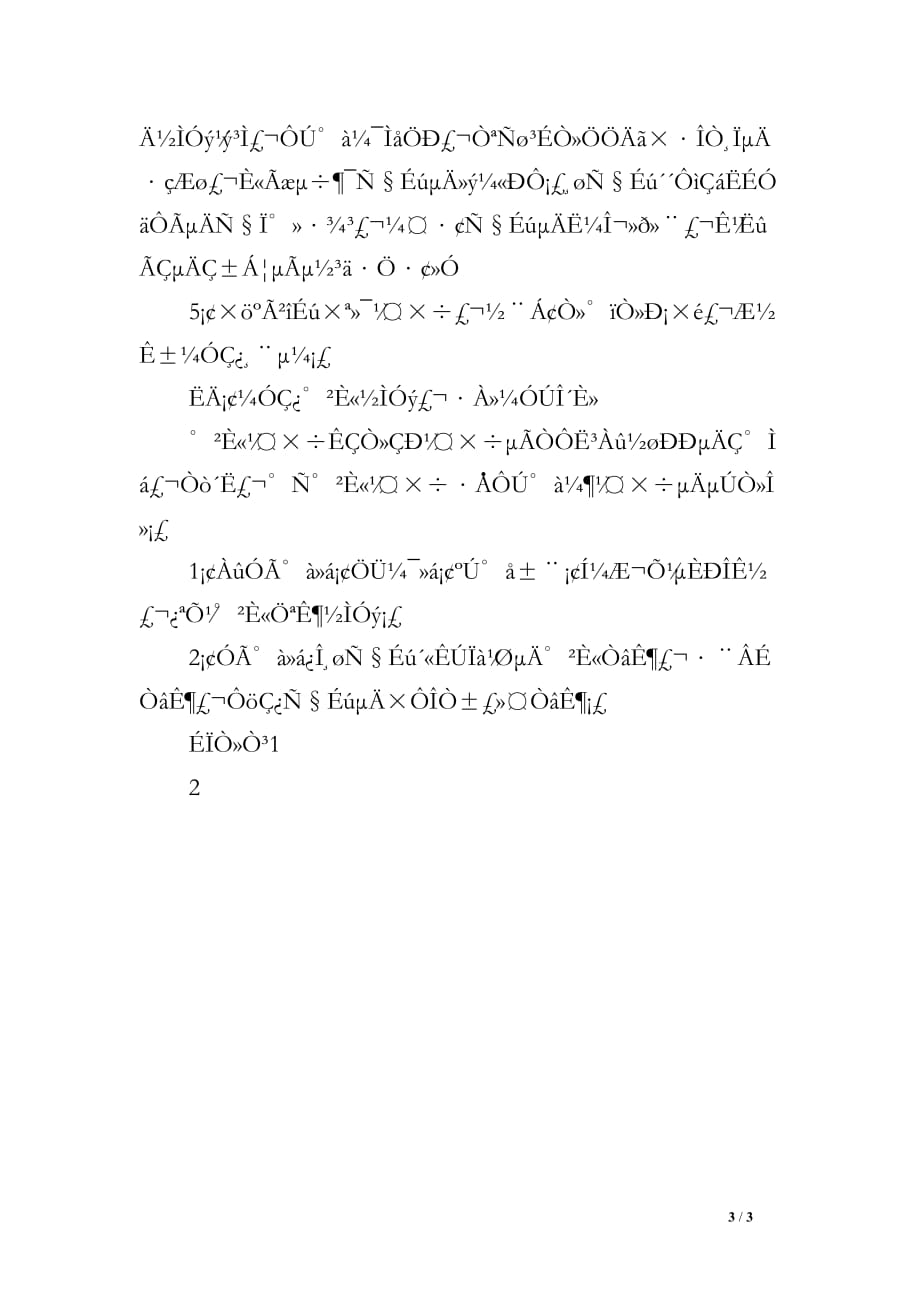 Ä½ÌÓý¼ý³Ì£¬ÔÚ°à¼¯ÌåÖÐ£¬ÒªÑø³ÉÒ»ÖÖÄã×·ÎÒ¸ÏµÄ
·çÆø£¬È«Ãæµ÷¶¯Ñ§ÉúµÄ»ý¼«ÐÔ¡£¸øÑ§Éú´´ÔìÇáËÉÓ
äÔÃµÄÑ§Ï°»·¾³£¬¼¤·¢Ñ§ÉúµÄË¼Î¬»ð»¨£¬Ê¹Ëû
ÃÇµÄÇ±Á¦µÃµ½³ä·Ö·¢»Ó
5¡¢×öºÃ²îÉú×ª»¯¹¤×÷£¬½¨Á¢Ò»°ïÒ»Ð¡×é£¬Æ½
Ê±¼ÓÇ¿¸¨µ¼¡£
ËÄ¡¢¼ÓÇ¿°²È«½ÌÓý£¬·À»¼ÓÚÎ´È»
°²È«¹¤×÷ÊÇÒ»ÇÐ¹¤×÷µÃÒÔË³Àû½øÐÐµÄÇ°Ì
á£¬Òò´Ë£¬°Ñ°²È«¹¤×÷·ÅÔÚ°à¼¶¹¤×÷µÄµÚÒ»Î
»¡£
1¡¢ÀûÓÃ°à»á¡¢ÖÜ¼¯»á¡¢ºÚ°å±¨¡¢Í¼Æ¬Õ¹µÈÐÎÊ½
£¬¿ªÕ¹°²È«ÖªÊ¶½ÌÓý¡£
2¡¢ÓÃ°à»á¿Î¸øÑ§Éú´«ÊÚÏà¹ØµÄ°²È«ÒâÊ¶£¬·¨ÂÉ
ÒâÊ¶£¬ÔöÇ¿Ñ§ÉúµÄ×ÔÎÒ±£»¤ÒâÊ¶¡£
ÉÏÒ»Ò³1
2
3 / 3